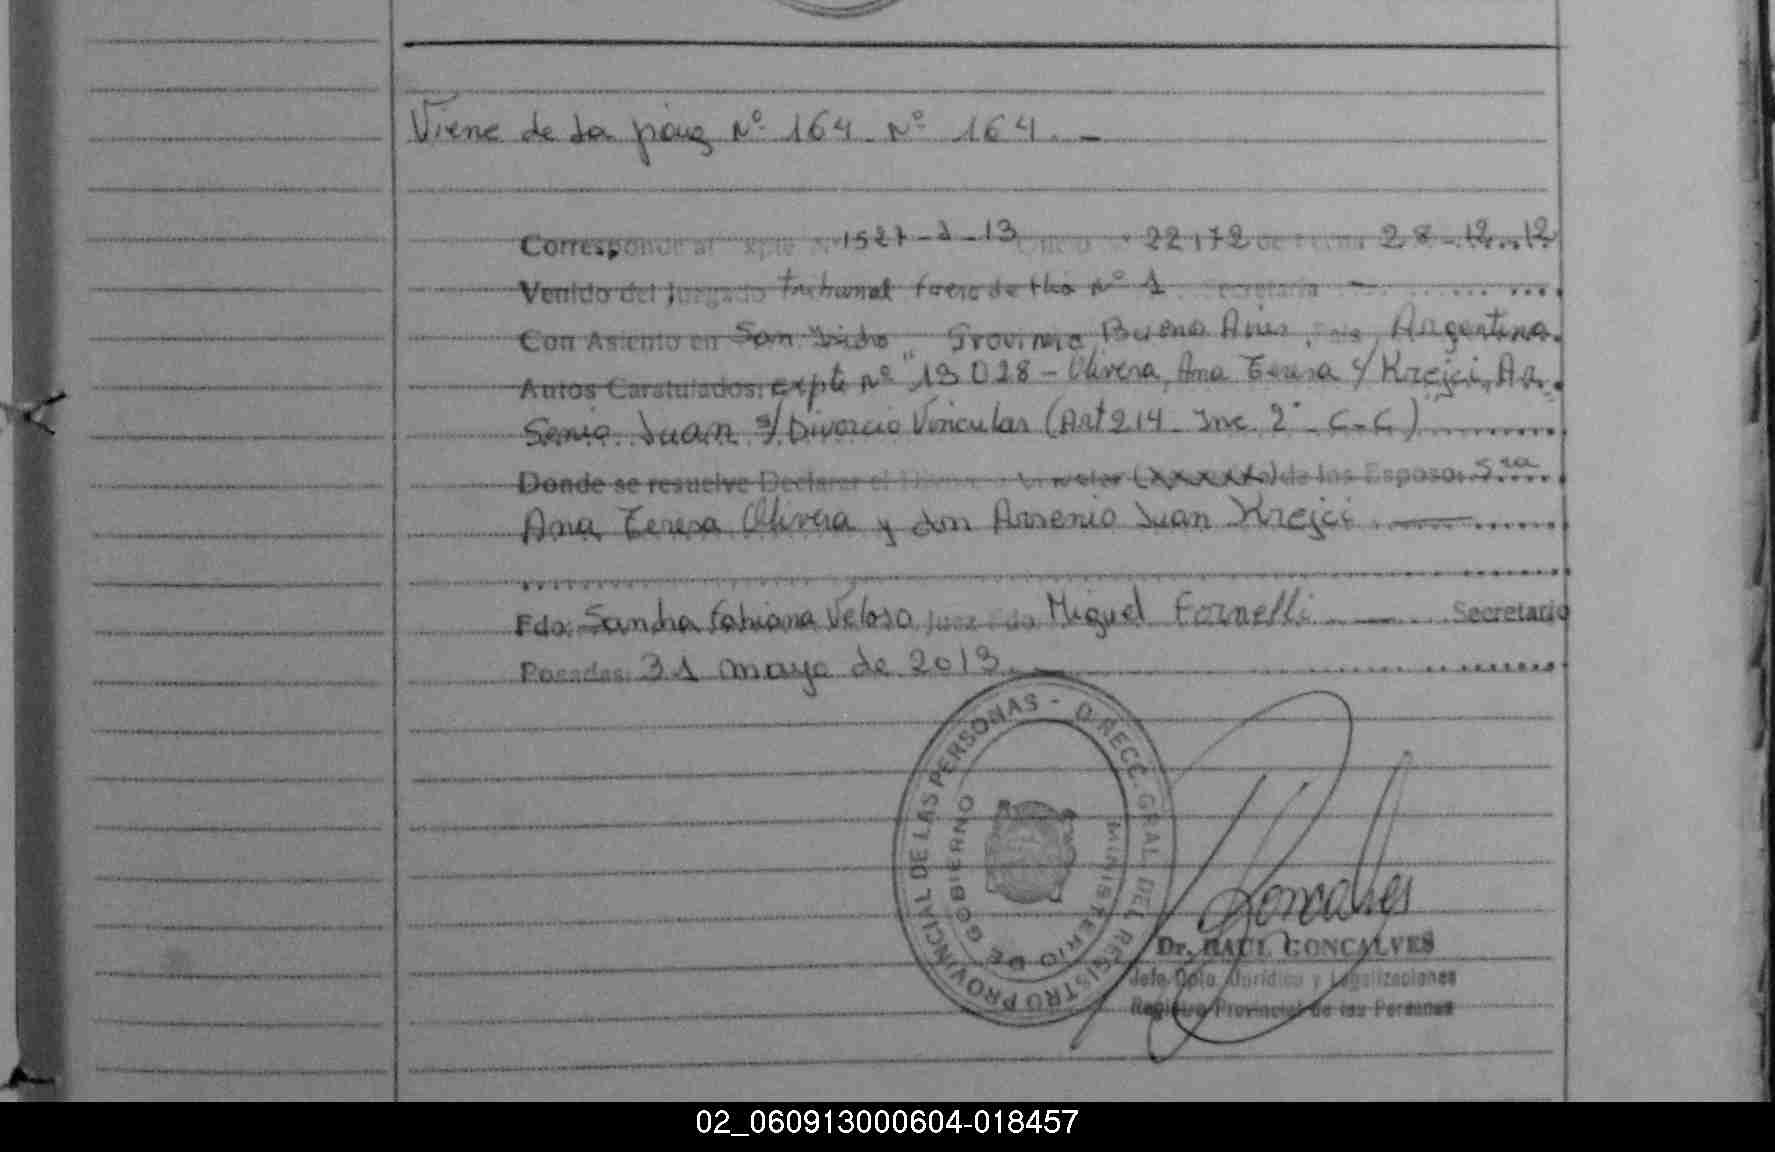 Viene de la pág Nº 164. Nº 164. -
Corresponde al Expte Nº 1527-J-13 Oficio Nº 22172 de Fecha 28-12-12
Venido del Juzgado Tribunal Nº 1 Secretaria -
Con Asiento en San Isidro Provincia Buenos Aires, País, Argentina.
Autos Caratulados: expte nº "13028 - Olivera, Ana Teresa C/ Krejci, Ar
Senio Juan S/ Divorcio Vincular (Art 214 - Inc. 2º - C-C)
Donde se resuelve Declarar el Divorcio Vincular (xxxxxx) de los Esposos Sra
Ana Teresa Olivera y don Arsenio Juan Krejci
Fdo: Sandra Fabiana Veloso Juez Fdo Miguel Fornelli Secretario
Posadas: 31 mayo de 2013. -
DIRECC. GRAL. DEL REGISTRO PROVINCIAL DE LAS PERSONAS -
MINISTERIO DE GOBIERNO
Goncalves
Dr. RAUL GONCALVES
Jefe Dpto. Jurídico y Legalizaciones
Registro Provincial de las Personas
02_060913000604-018457